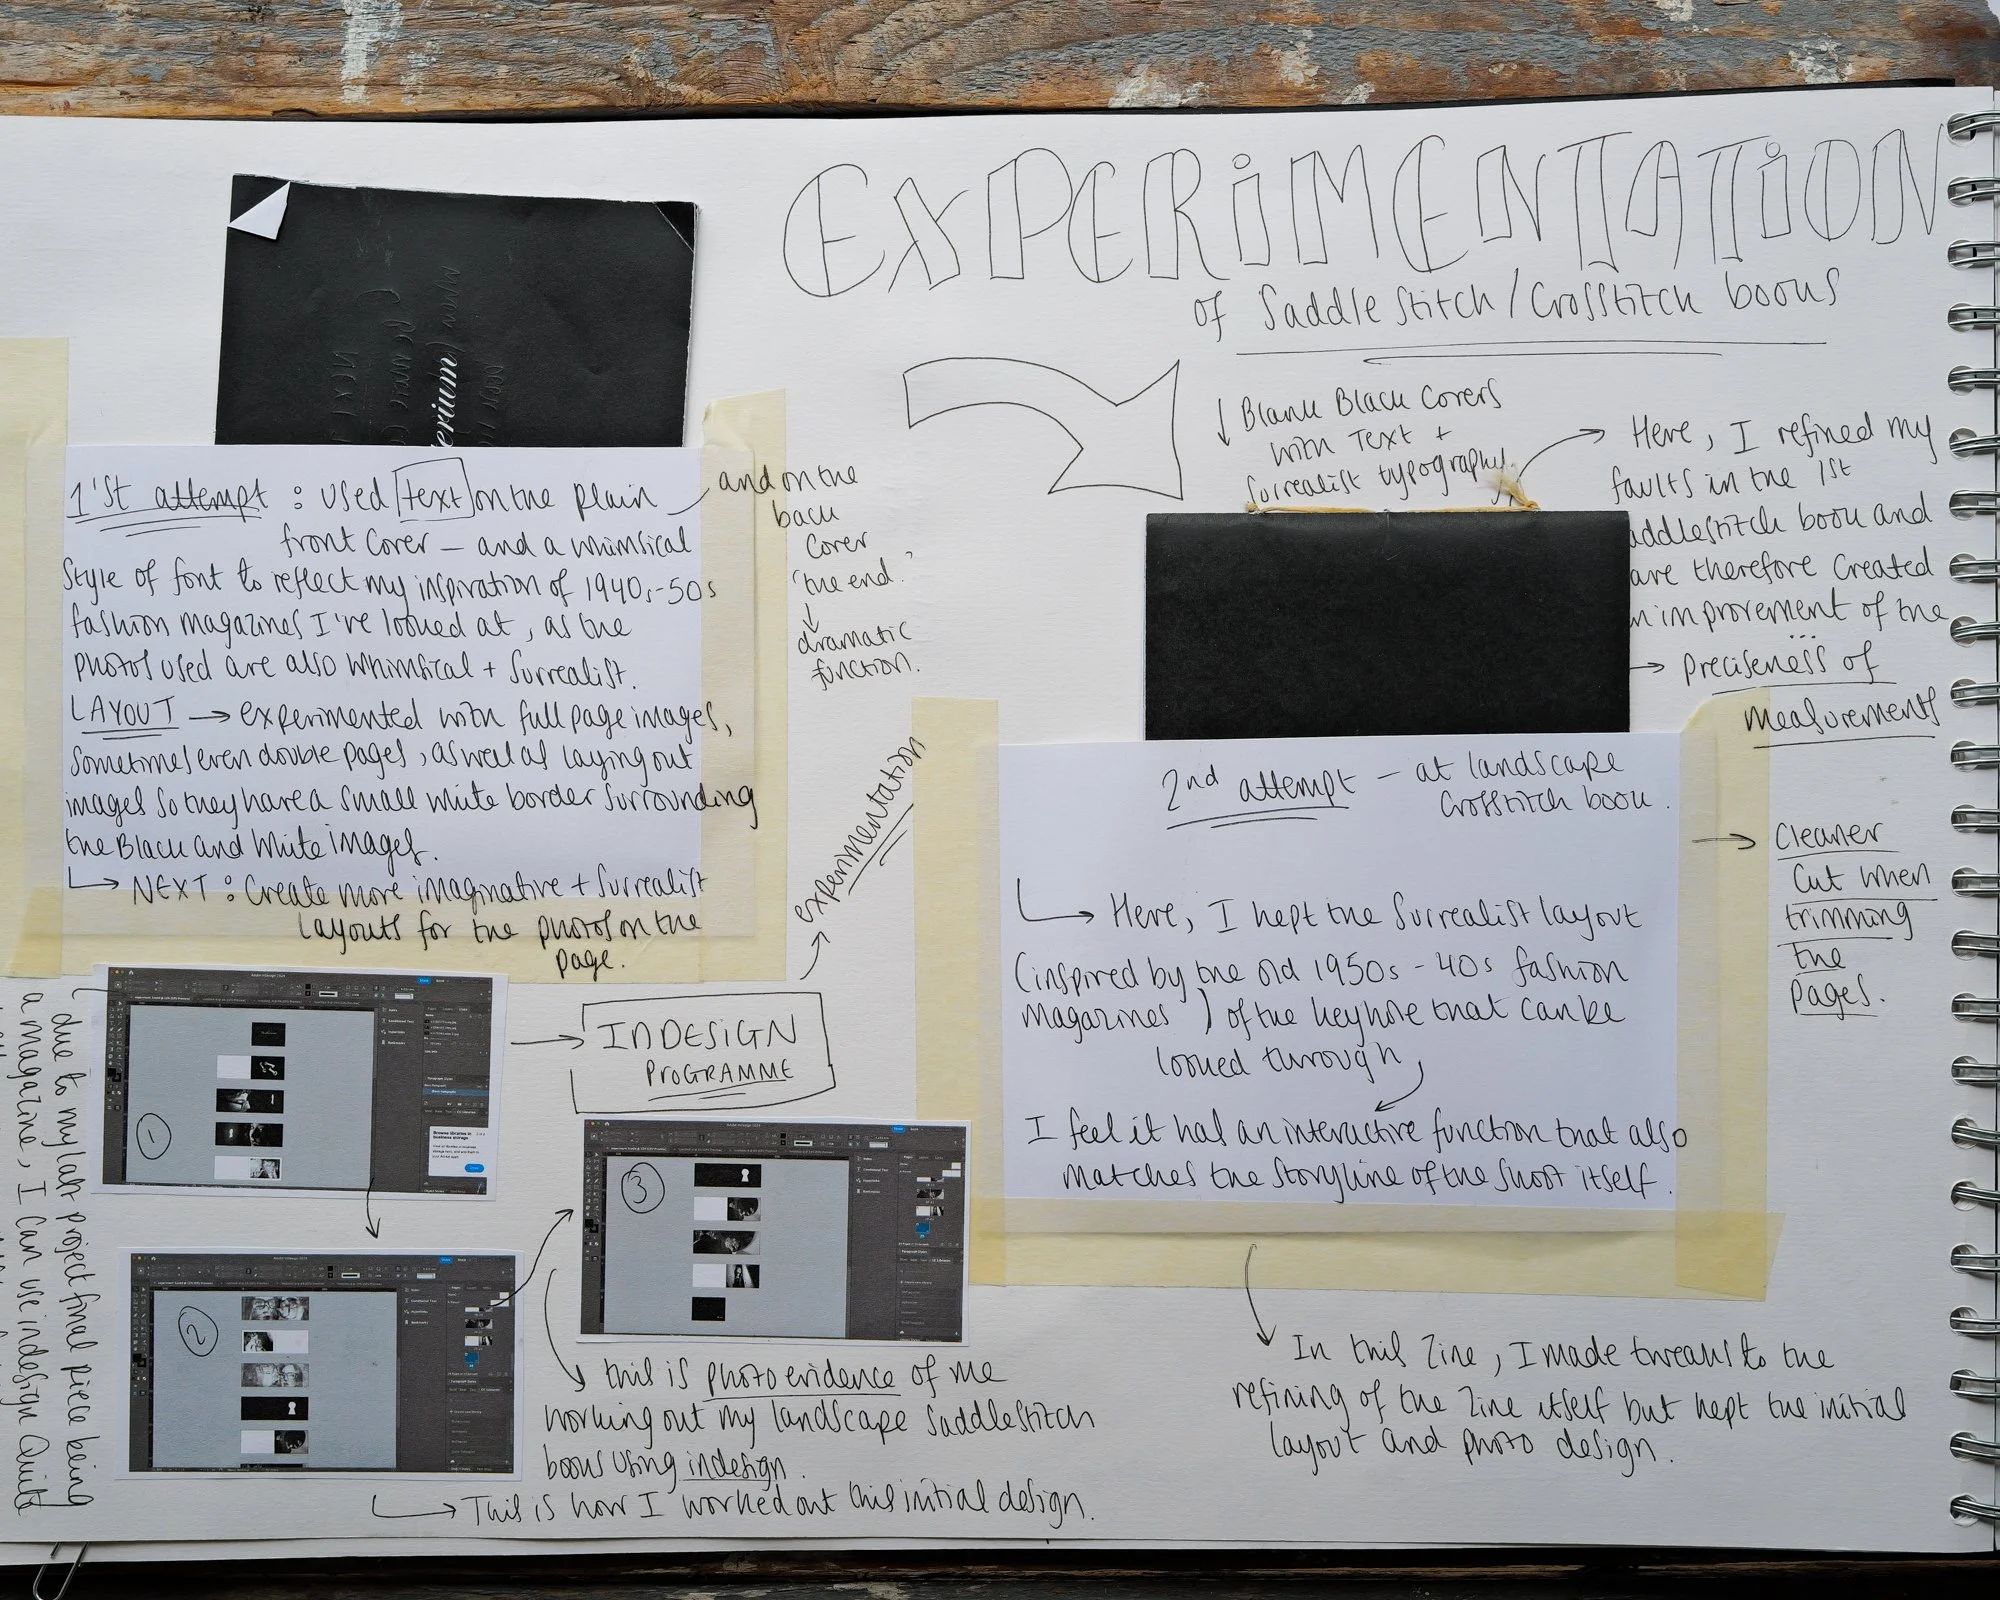 EXPERiMENTATiON
of Saddle Stitch / Crosstitch books
Blank Black Covers
with Text +
Surrealist typography
Here, I refined my
faults in the 1st
addlestitch book and
ave therefore Created
n improvement of the
...
→ preciseness of
measurements
→ Cleaner
Cut when
trimming
the
pages.
erium
1'st attempt : used text on the plain
front Cover – and a whimsical
Style of font to reflect my inspiration of 1940s-50s
fashion magazines I've looked at, as the
photos used are also whimsical + Surrealist.
LAYOUT → experimented with full page images,
Sometimes even double pages, as well as laying out
images so they have a small white border surrounding
the Black and White images.
→ NEXT : Create more imaginative + Surrealist
Layouts for the photos on the
page.
and on the
back
Cover
'the end.'
↓
dramatic
function.
experimentation
INDESiGN
PROGRAMME
1
2
3
due to my last project final piece being
a magazine, I can use indesign Quite
this is photo evidence of me
working out my landscape Saddlestitch
books using indesign.
→ This is how I worked out this initial design.
2nd attempt – at landscape
Crosstitch book.
→ Here, I kept the Surrealist layout
(inspired by the old 1950s - 40s fashion
magazines) of the keyhole that can be
looked through
I feel it has an interactive function that also
matches the storyline of the shoot itself.
In this Zine, I made tweaks to the
refining of the Zine itself but kept the initial
layout and photo design.